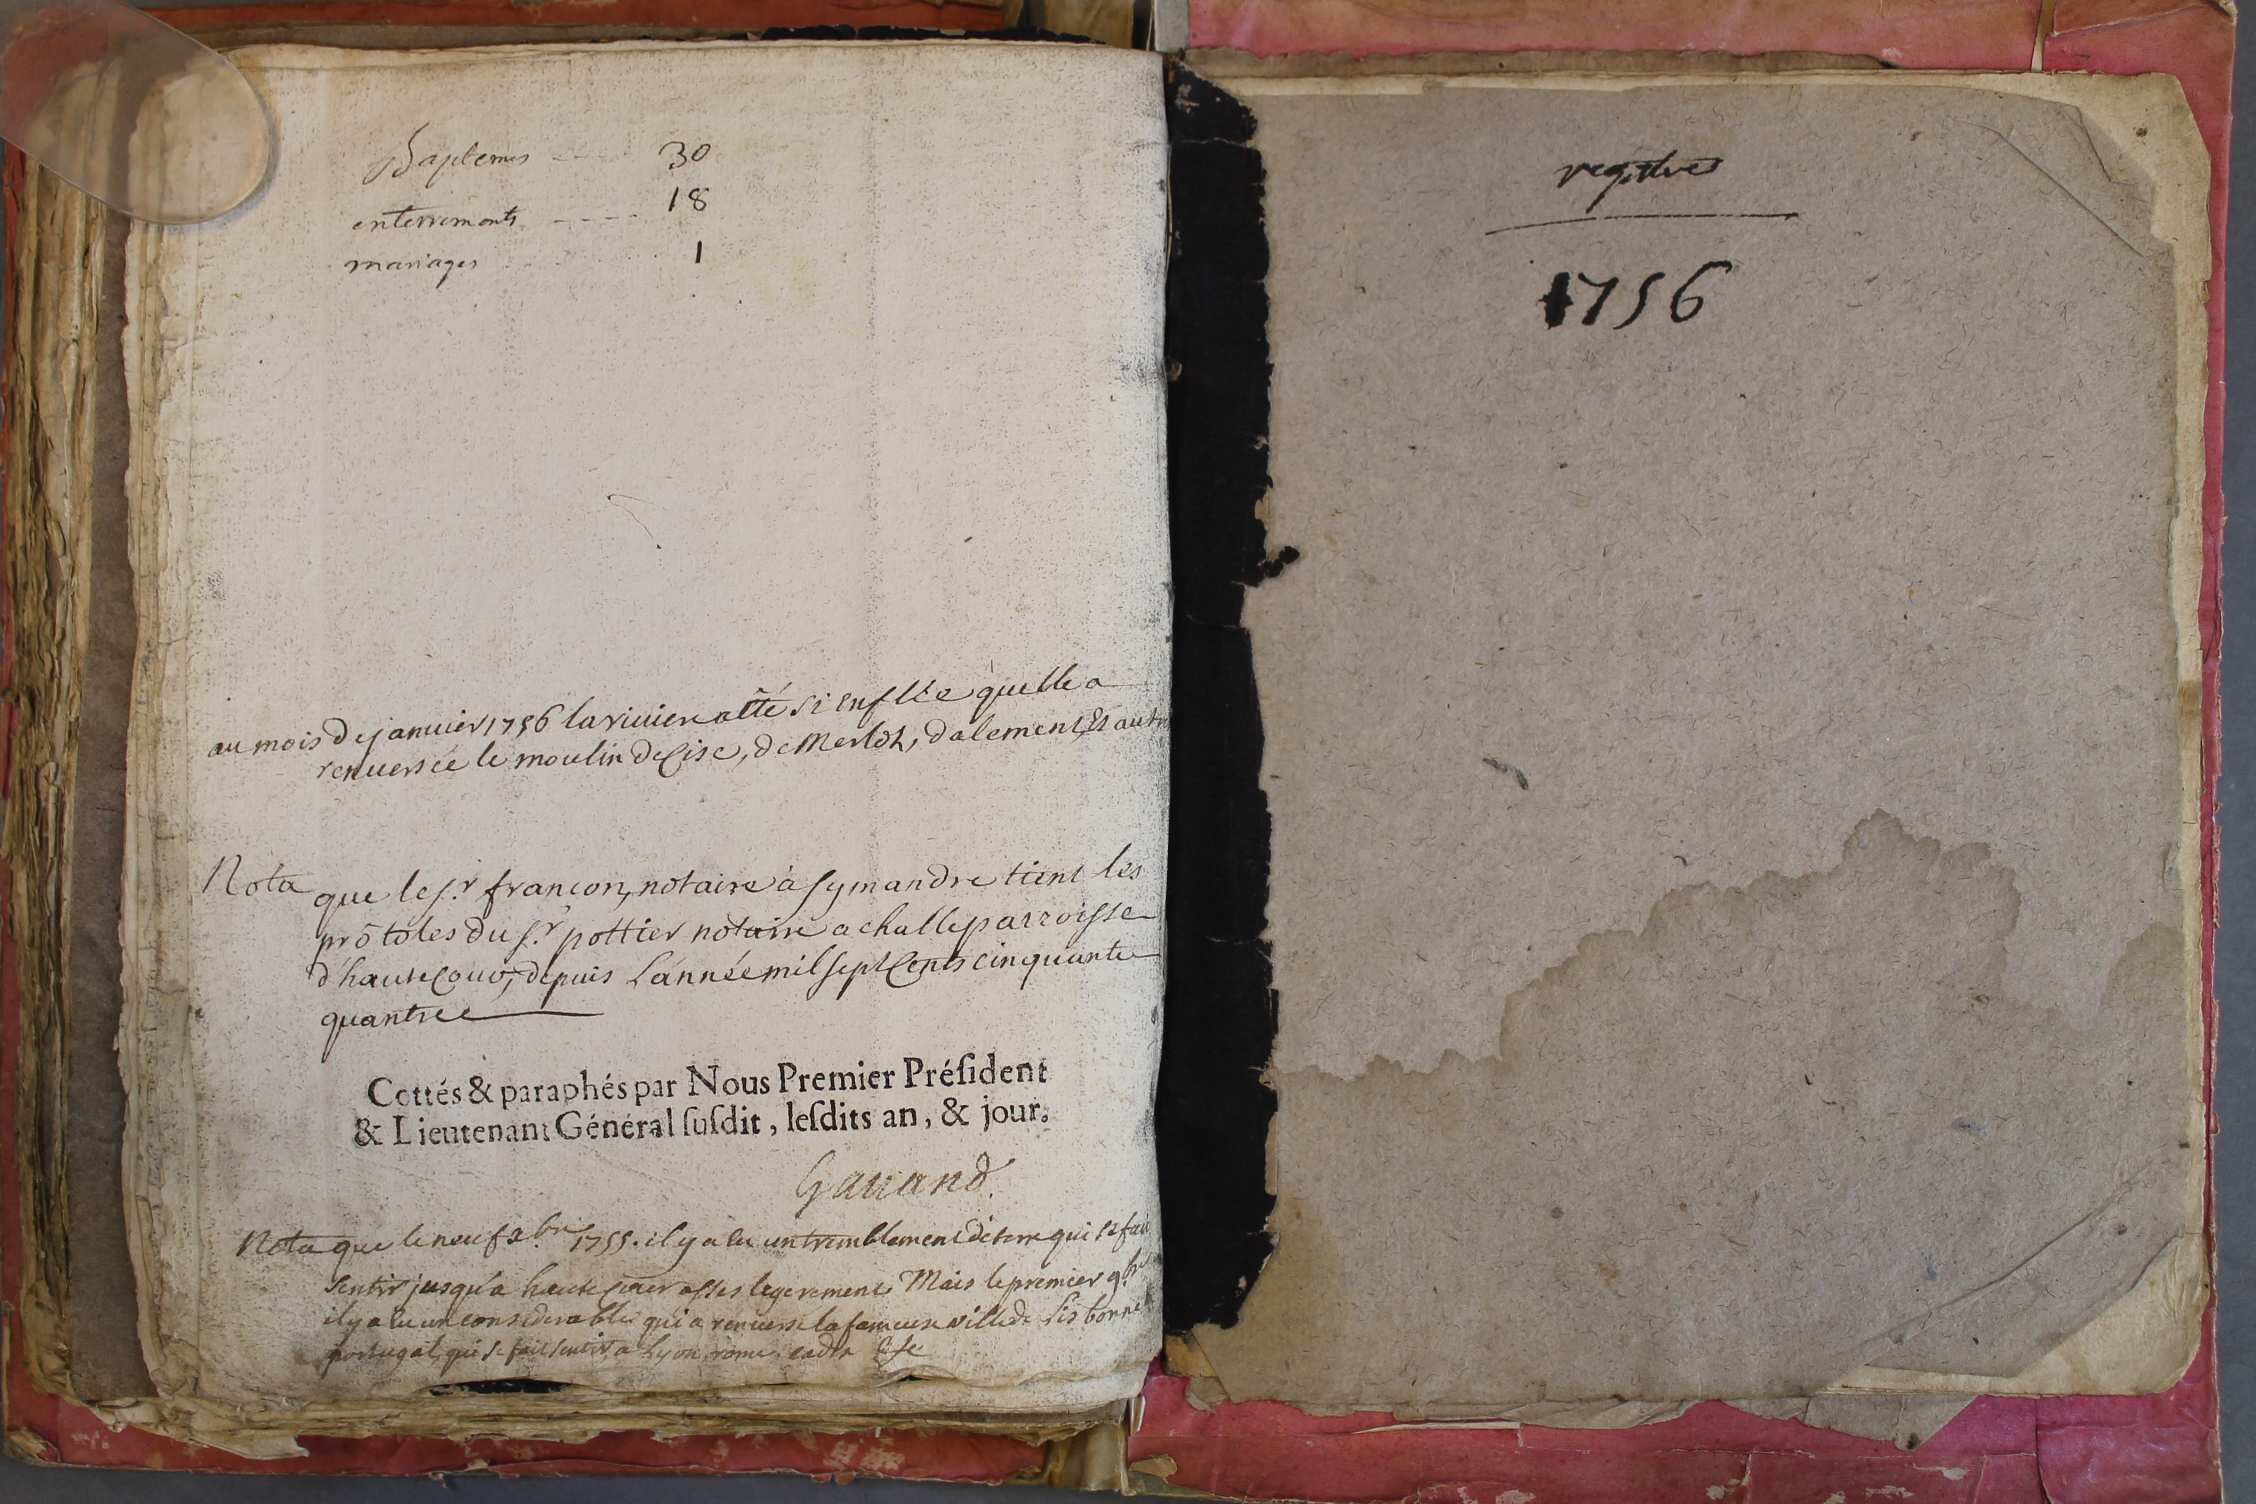 Baptemes ---- 30
enterrements ---- 18
mariages ........ 1
au mois de janvier 1756 la riviere a êté si enflée quelle a
renversée le moulin de Cise, de Merloz, dalement, Et autre
Nota que le sr. françon, notaire à symandre tient les
prōtôles du sr. pottier notaire a challe parroisse
d'hautecour, depuis L'année mil sept Cents cinquante
quantree
Cottés & paraphés par Nous Premier Préſident
& Lieutenant Général ſuſdit, leſdits an, & jour.
Gauand
Nota que le neuf xbre 1755. il y a eu un tremblement de terre qui se fait
sentir jusqu'a hautecour asses legerement Mais le premier 9bre
il y a eu un considerable qui a renverse la fameuse ville de Lisbonne
portugal, qui se fait sentir, a Lyon, rome, cadix &c
registre
1756